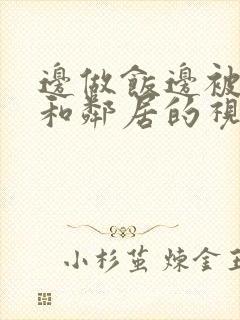 邊做飯邊被
和鄰居的視
小杉茧 煉金王